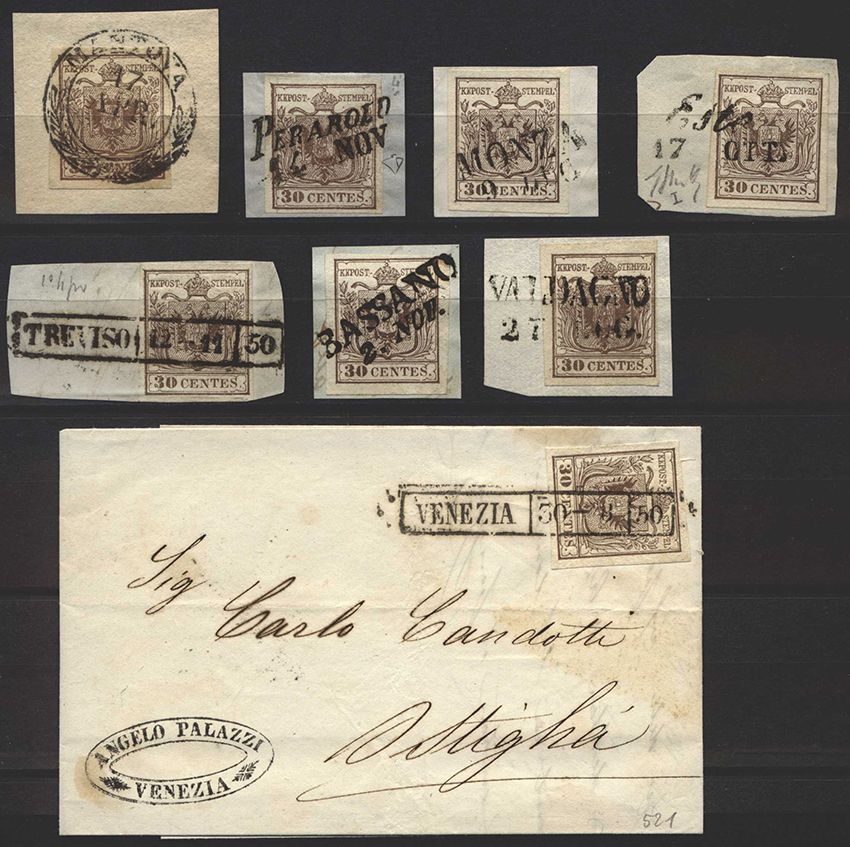 MANTOVA
17
APR.
KKPOST-STEMPEL
KKPOST-STEMPEL
PERAROLO
14 NOV
30 CENTES.
KKPOST-STEMPEL
MONZA
30 CENTES.
KKPOST-STEMPEL
Este
17 OTT.
I
30 CENTES.
KKPOST-STEMPEL
TREVISO 12-11 50
30 CENTES.
KKPOST-STEMPEL
BASSANO
2. NOV.
30 CENTES.
KKPOST-STEMPEL
VALDAGNO
27
30 CENTES.
KKPOST-STEMPEL
30 CENTES.
VENEZIA 30 50
Sig
Carlo Candotti
ANGELO PALAZZI
VENEZIA
521